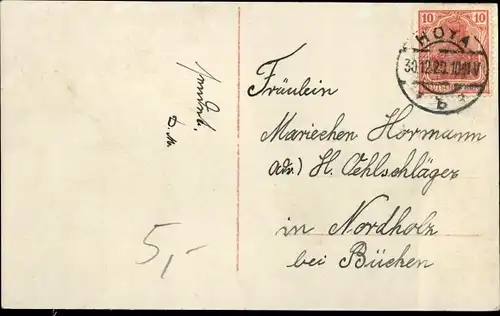 10
10
HOYA
30.12.20.10-11V
b
Fräulein
Mariechen Hormann
Adr.) H. Oehlschläger
in Nordholz
bei Büchen
5,-